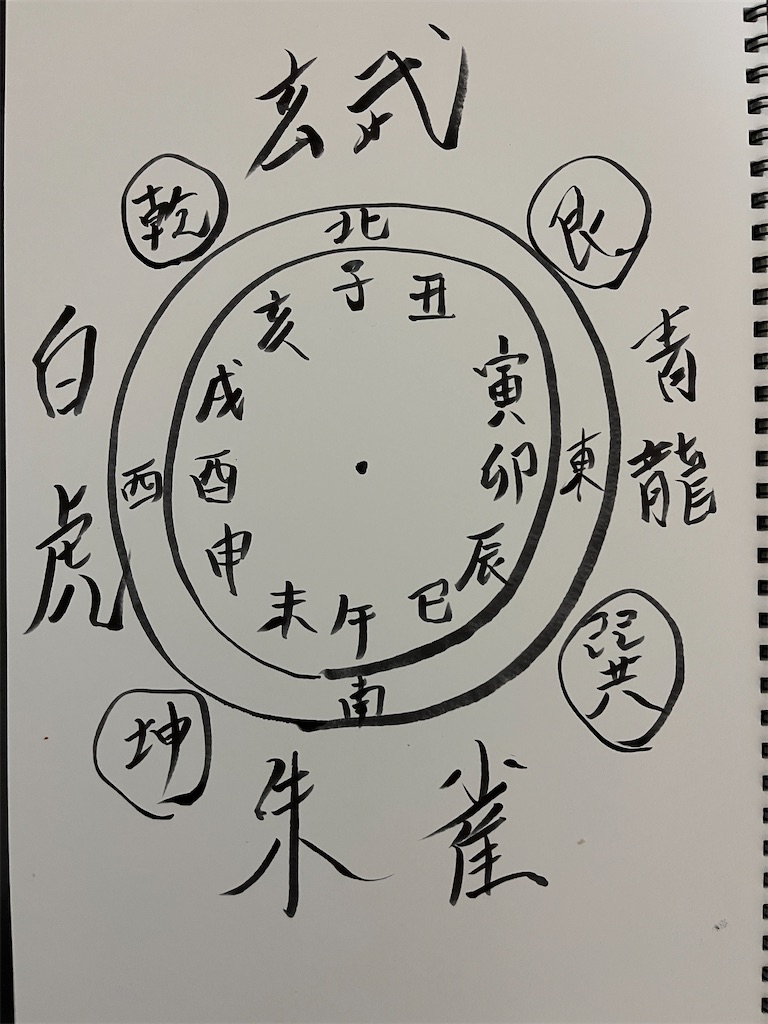 玄武
乾
艮
北
子
丑
亥
寅
戌
卯
酉
辰
申
巳
未
午
西
東
南
白虎
青龍
巽
坤
朱雀